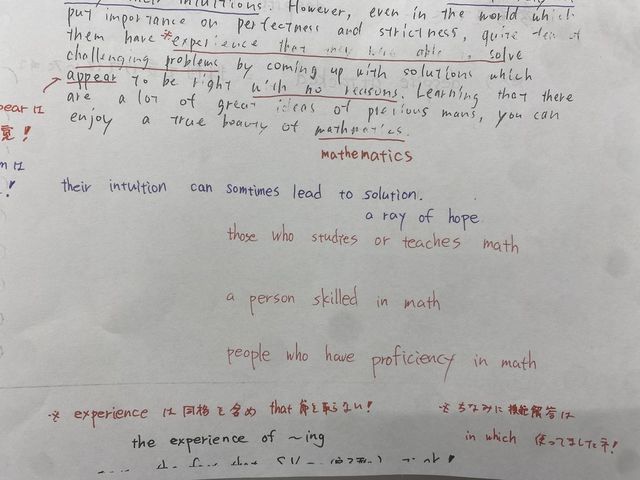 their intuitions. However, even in the world which
put importance on perfectness and strictness, quite
them have *experience that may able solve
challenging problems by coming up with solutions which
appear to be right with no reasons. Learning that there
are a lot of great ideas of previous mans, you can
enjoy a true beauty of mathmatics.
mathematics
their intuition can somtimes lead to solution.
a ray of hope.
those who studies or teaches math
a person skilled in math
people who have proficiency in math
※ experience は同格を含め that 節を取らない!
the experience of ~ing
※ ちなみに模範解答は
in which 使ってましたネ!